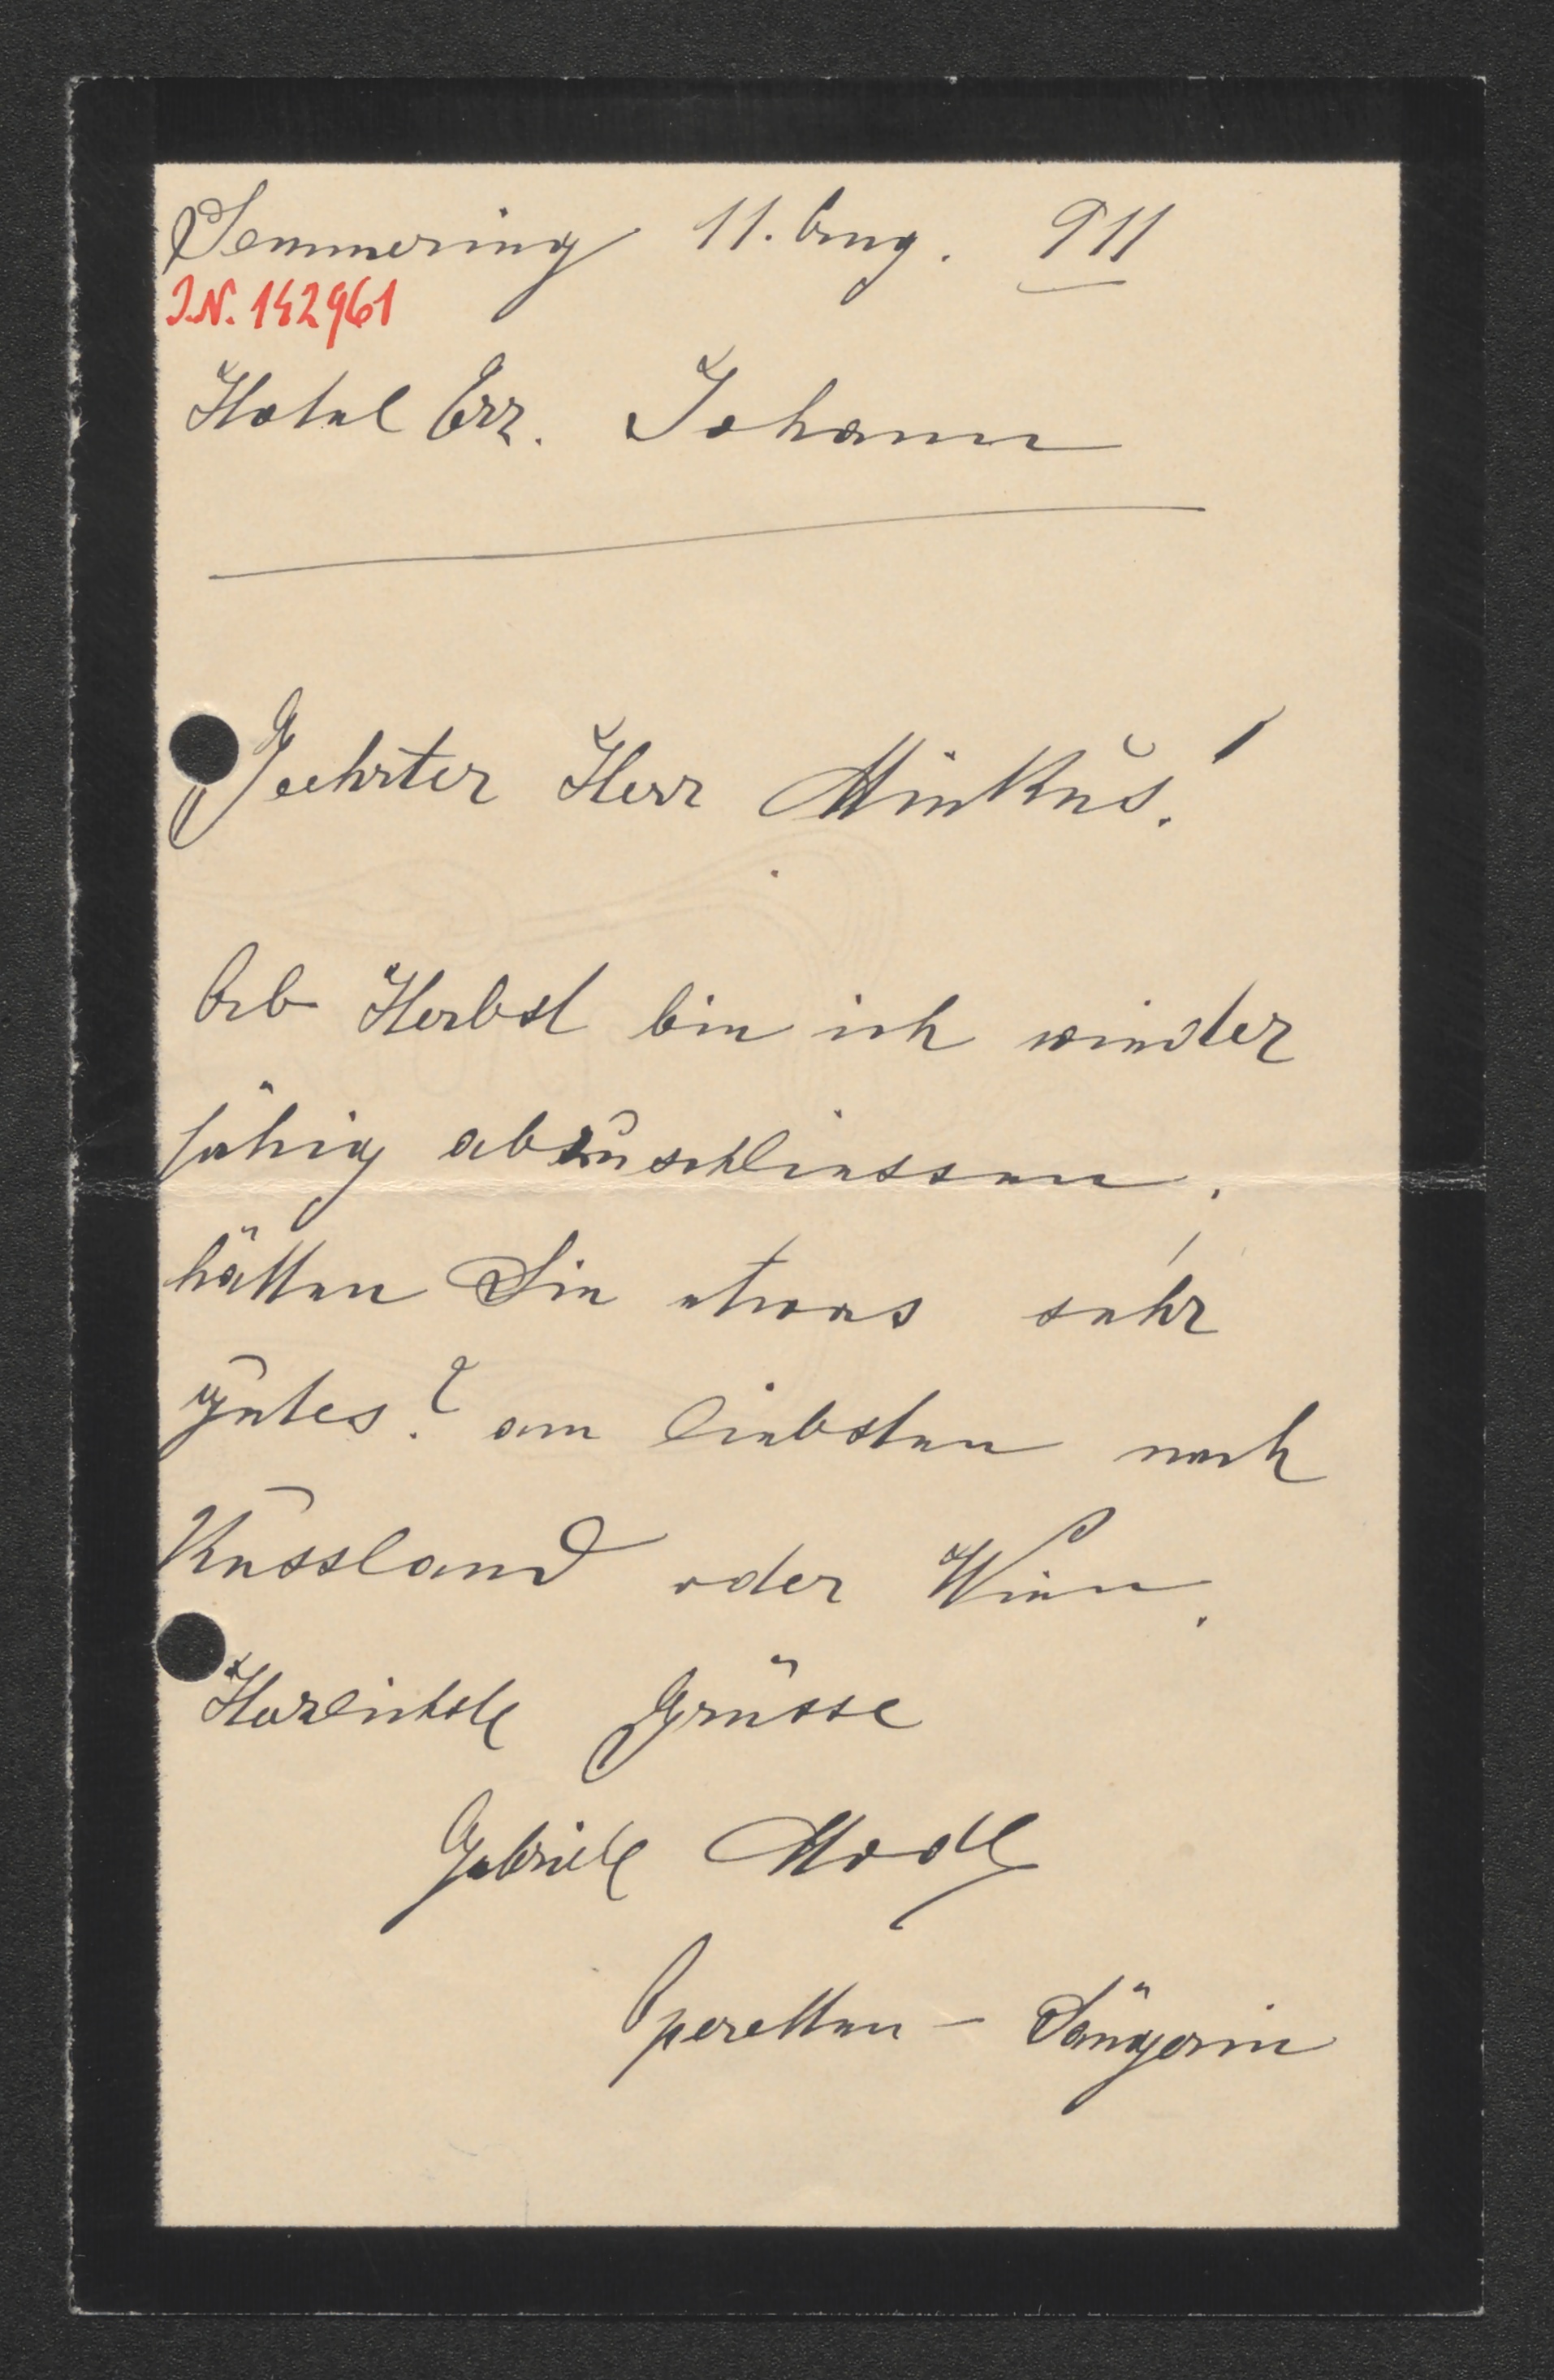 Semmering 11. Aug. 911
I.N. 142961
Hotel Erz. Johann
Geehrter Herr Minkus!
Ab Herbst bin ich wieder
fähig abzuschliessen.
hätten Sie etwas sehr
gutes? am liebsten nach
Russland oder Wien.
Herzlichste Grüsse
Gabriele Modl
Operetten - Sängerin